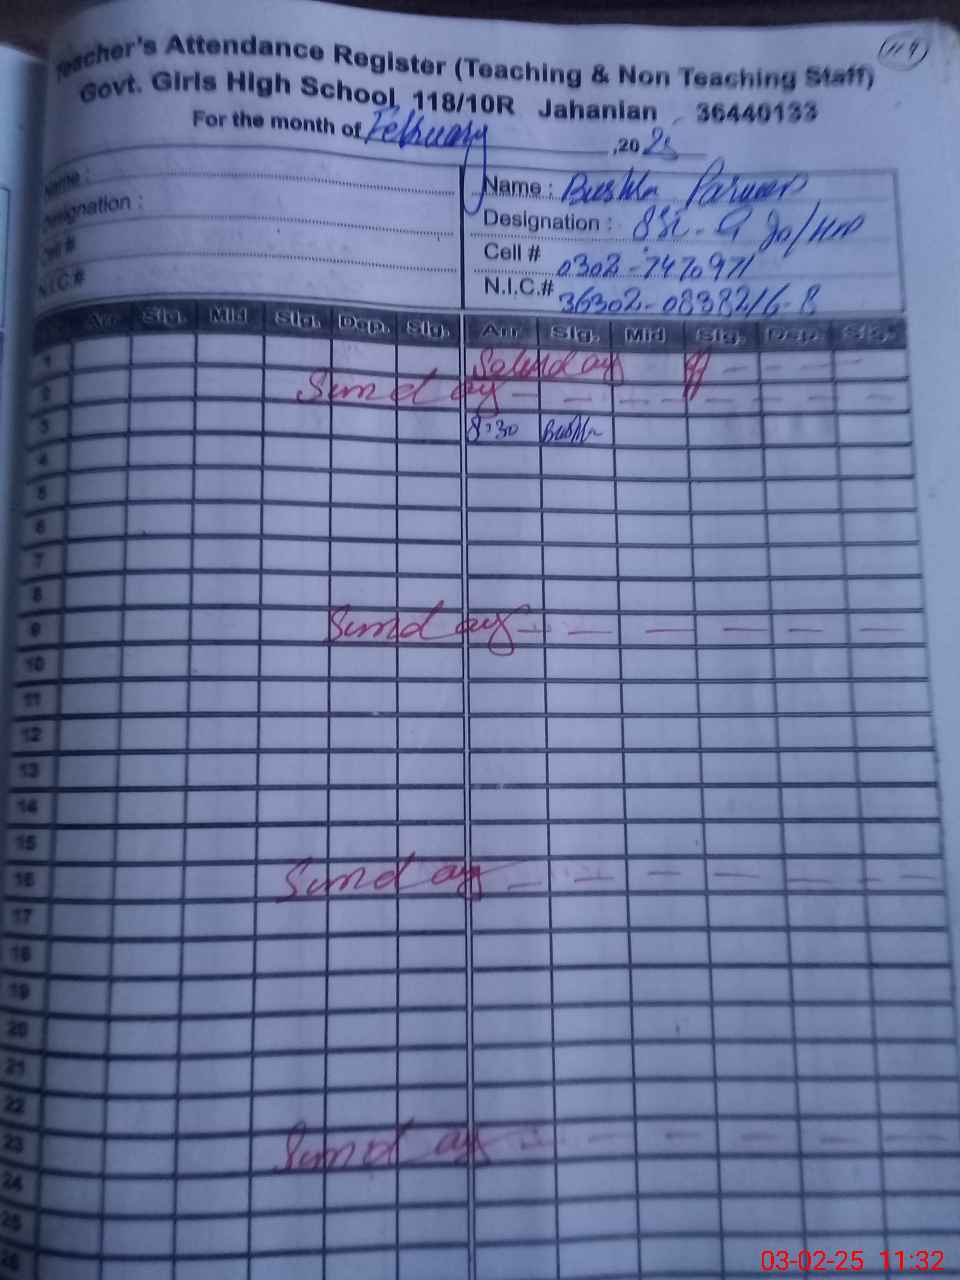 Teacher's Attendance Register (Teaching & Non Teaching Staff)
Govt. Girls High School 118/10R Jahanian 36440133
For the month of February ,2025
Name :
Designation :
Cell #
N.I.C.#
Name : Bushra Parveen
Designation :
Cell # 0302-7470971
N.I.C.# 36302-0838216-8
Arr. Sig. Mid Sig. Dep. Sig. Arr. Sig. Mid Sig. Dep. Sig.
1 Saturday
2 Sunday
3 8:30 Bushra
4
5
6
7
8
9 Sunday
10
11
12
13
14
15
16 Sunday
17
18
19
20
21
22
23 Sunday
24
25
26
03-02-25 11:32